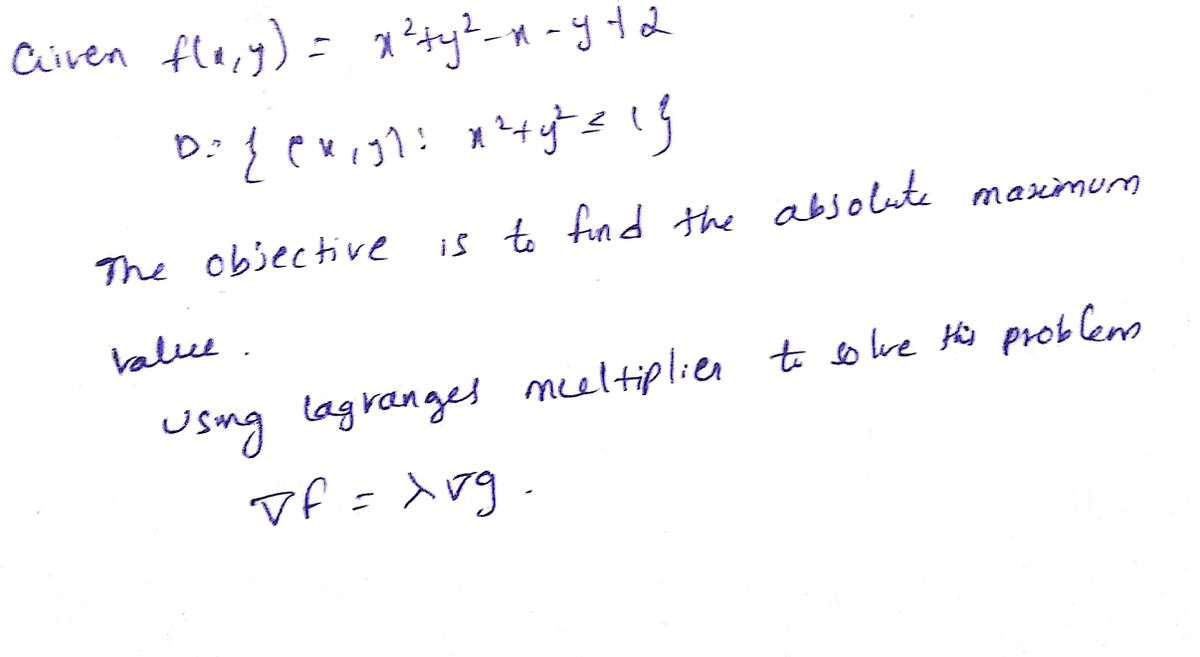 Given f(x,y) = x²+y²-x-y+2
D = { (x,y): x²+y² ≤ 1 }
The objective is to find the absolute maximum
value.
Using lagranges multiplier to solve this problem
∇f = λ∇g.